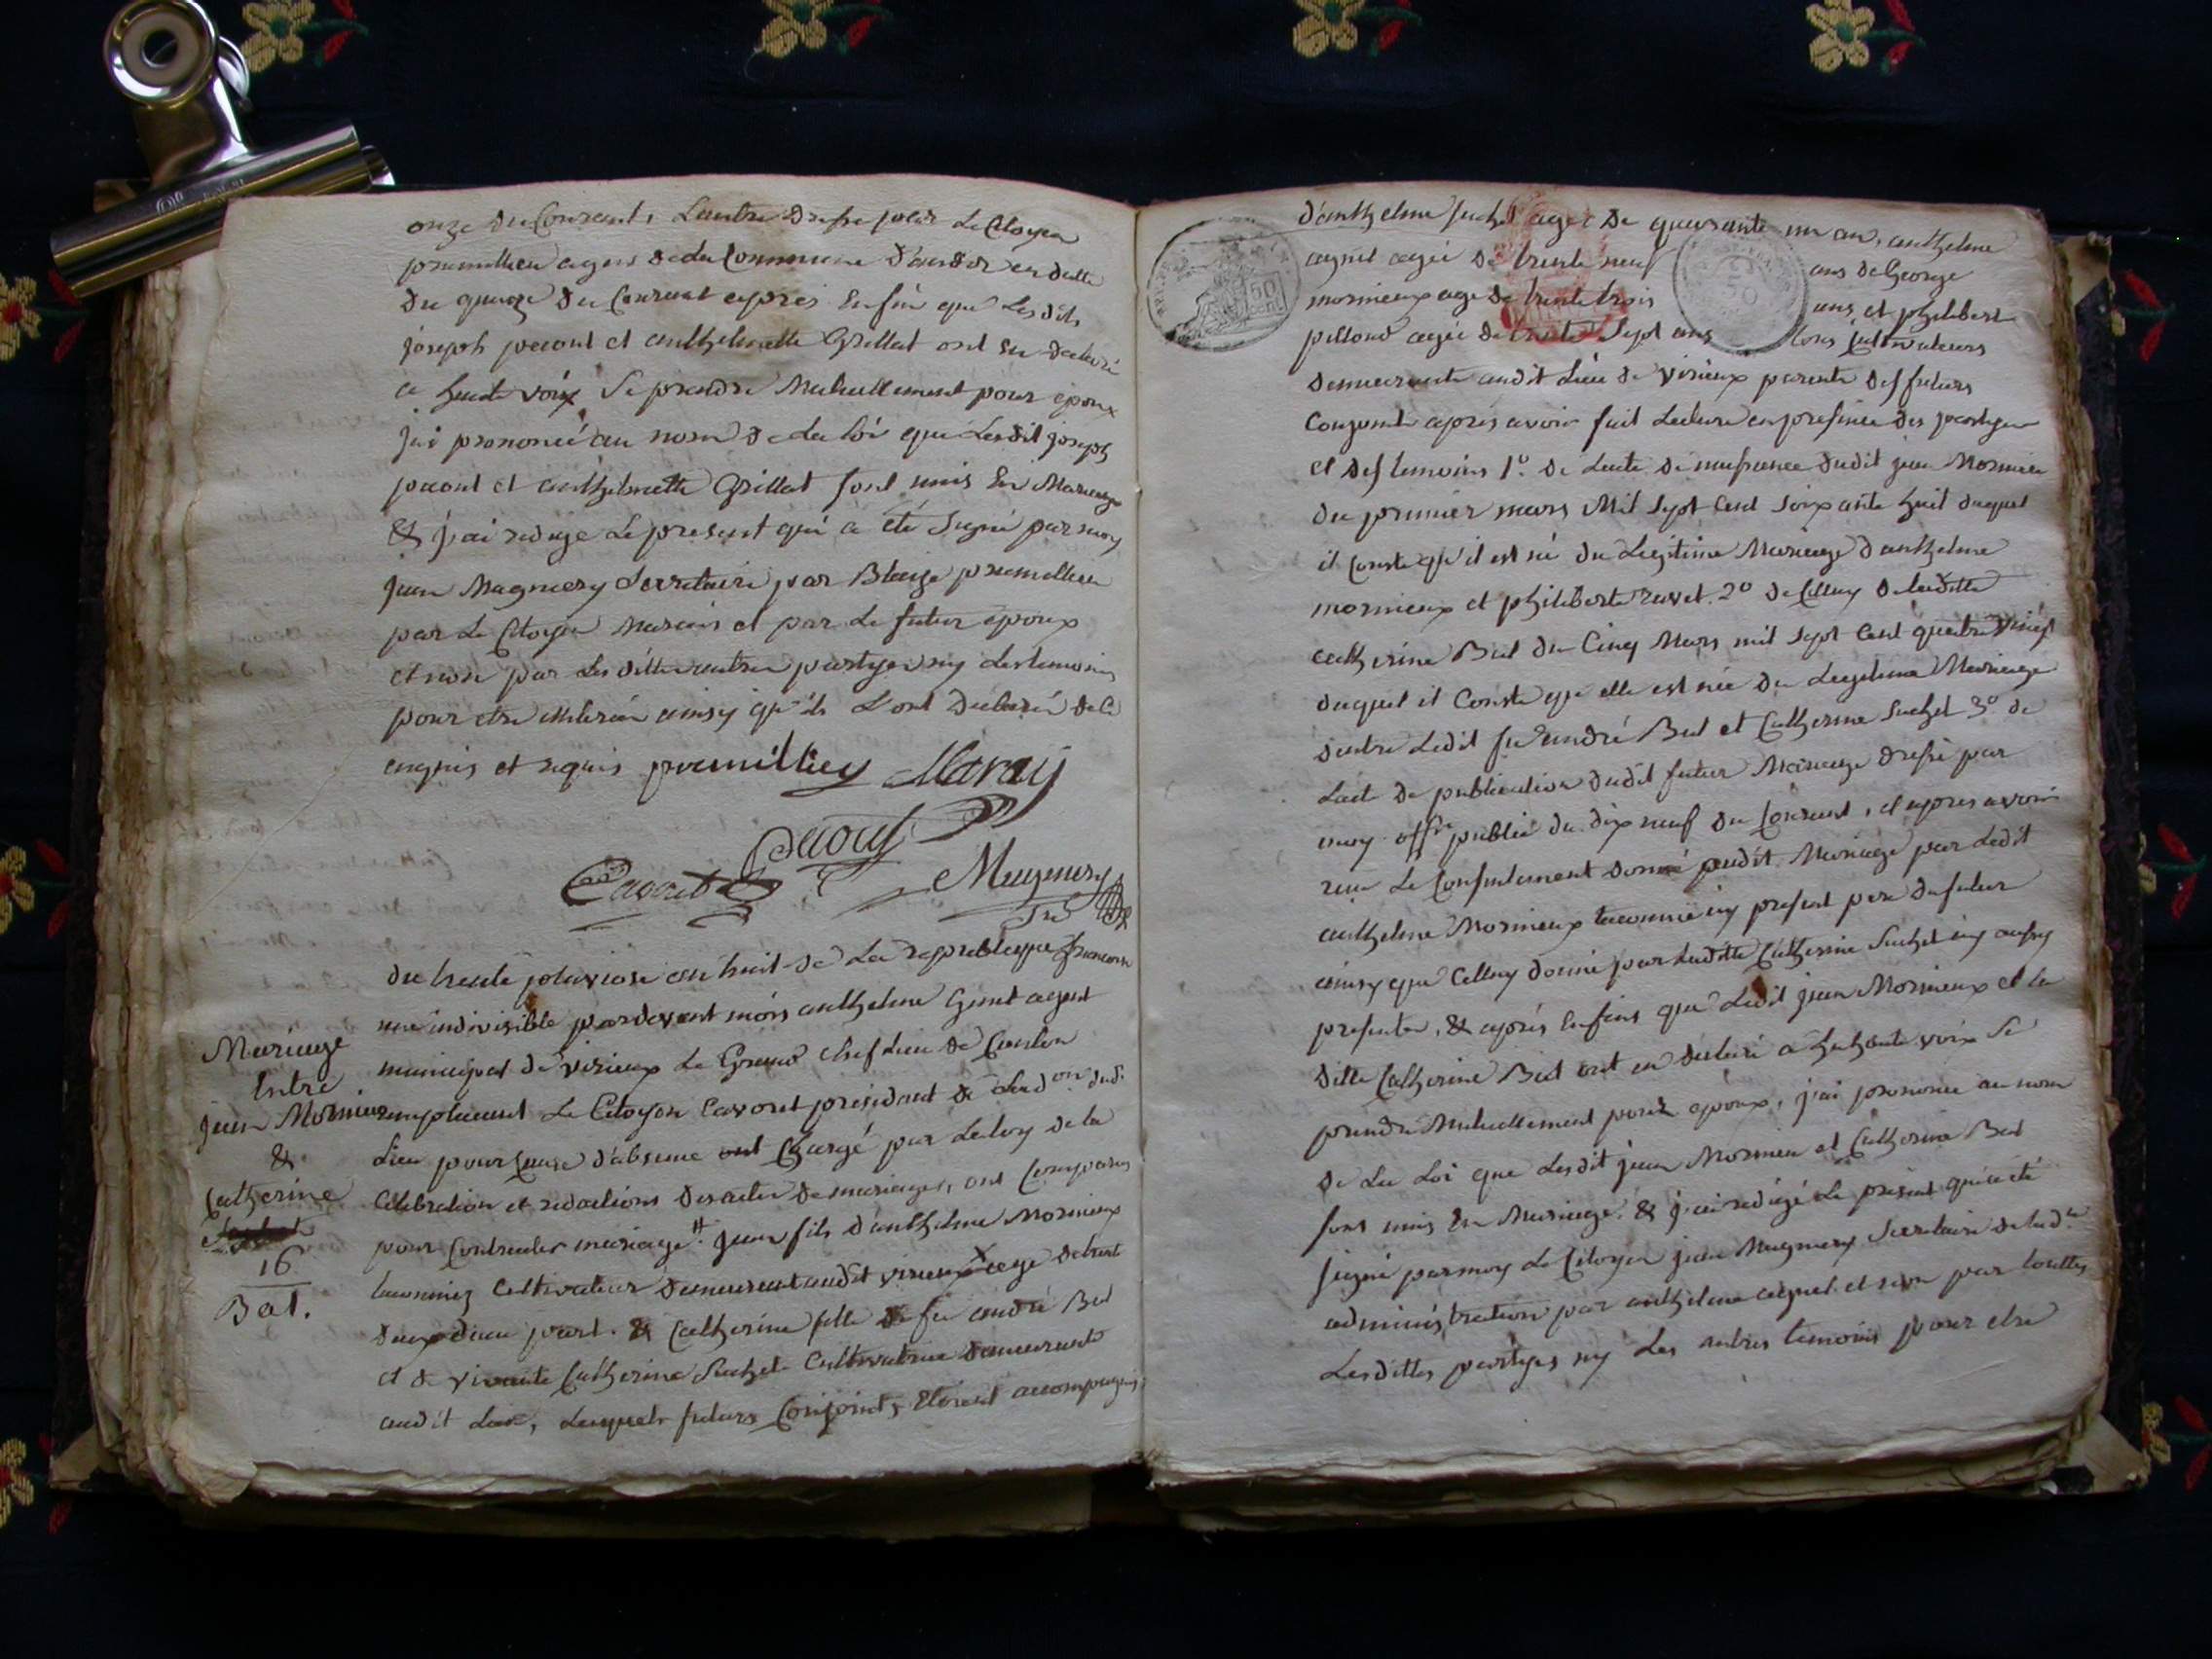 onze du Courant, Lautre dressé par Le Citoyen
premillieu agent de la Commune d'andor en datte
du quinze du Courant apres Enfin que Lesdits
joseph pavont et anthelmette Grillat ont Eu declaré
a haute voix Se prendre Mutuellement pour epoux
jai prononcé au nom de La loi que Lesdit joseph
pavont et anthelmette Grillat sont unis En Mariage
& j'ai redige Le present qui a été Signé par moy
jean Magniery Secretaire par Blaize premillieu
par Le Citoyen et par Le futur epoux
et non par Les dittes autres partyes ny Les temoins
pour etre illiteré ainsy qu'ils L'ont declaré de ce
enquis et requis premillieu
Cavoret
Magniery
Sre
du trente pluviose an huit de La republique francoise
une indivisible pardevant mois anthelme agent
municipal de virieux Le Grand chef Lieu de Canton
remplacent Le Citoyen Cavoret president de Lad.on dud.
Lieu pour Cause d'absence ont Chargé par La loy de la
Celebration et redactions des actes de mariages, ont Comparus
pour Contracter mariage jean fils d'anthelme Mornieux
Cultivateur demeurant audit virieux age de trente
deux d'une part. & Catherine fille de feu andré Bal
et de vivante Catherine Suchet Cultivatrice demeurante
audit Lieu, Lesquels futurs Conjoints Etoient accompagnés
Mariage
Entre
jean Mornieux
&
Catherine
16
Bal.
d'anthelme Suchet agé de quarante un an, anthelme
agniel agé de trente neuf ans de George
mornieux age de trente trois ans, et philibert
pillond agé de trente Sept ans tous Cultivateurs
50
cent
demeurants audit Lieu de virieux parents des futurs
Conjoints apres avoir fait Lecture en presence des partyes
et des temoins 1o. de Lacte de naissance dudit jean Mornieu
du premier mars Mil Sept Cent Soixante huit duquel
il Conste qu'il est né du Legitime Mariage d'anthelme
mornieux et philiberte ravet. 2o de Celluy de laditte
catherine Bal du Cinq Mars mil Sept Cent quatre vingt
duquel il Conste qu'elle est née du Legitime Mariage
d'entre Ledit feu andré Bal et Catherine Suchet 3o. de
Lact de publication dudit futur Mariage dressé par
moy publié du dix neuf du Courant, et apres avoir
reçu Le Consentement donné audit Mariage par Ledit
anthelme Mornieux icy present pere du futur
ainsy que Celluy donné par Laditte Catherine Suchet icy aussy
presente, & aprés Enfins que Ledit jean Mornieux et la
ditte Catherine Bal ont eu declaré a haute voix Se
prendre Mutuellement pour epoux, j'ai prononcé au nom
de La Loi que Lesdit jean Mornieu et Catherine Bal
sont unis En Mariage & j'ai redigé Le présent qui a été
signé par moy Le Citoyen jean Magniery Secretaire de lad.te
administration par anthelme agniel et non par touttes
Lesdittes partyes ny Les autres temoins pour etre